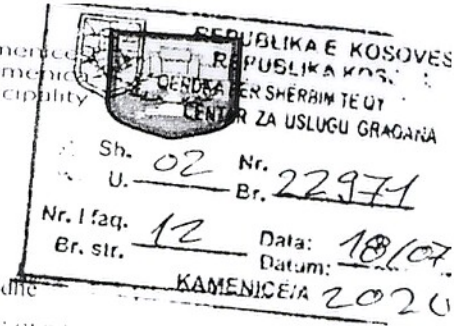 REPUBLIKA E KOSOVES
REPUBLIKA KOS
QENDRA PER SHERBIM TE QY
CENTAR ZA USLUGU GRAĐANA
cipality
Sh. 02 Nr. 22971
U. Br.
Nr. I faq. 12 Data: 18/07
Br. str. Datum: 2020
KAMENICË/A
dhe